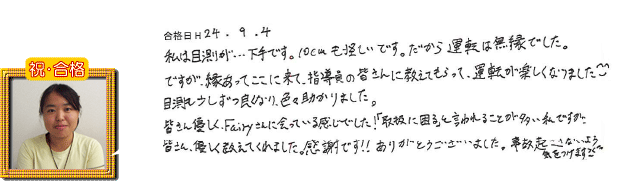 祝・合格
合格日 H24.9.4
私は目測が…下手です。10cmも怪しいです。だから運転は無縁でした。
ですが、縁あってここに来て、指導員の皆さんに教えてもらって、運転が楽しくなりました
目測も少しずつ良くなり、色々助かりました。
皆さん優しく、Fairyさんに会っている感じでした!「取扱に困る」と言われることが多い私ですが、
皆さん、優しく教えてくれました。感謝です!!ありがとうございました。事故起こさないよう
気をつけます